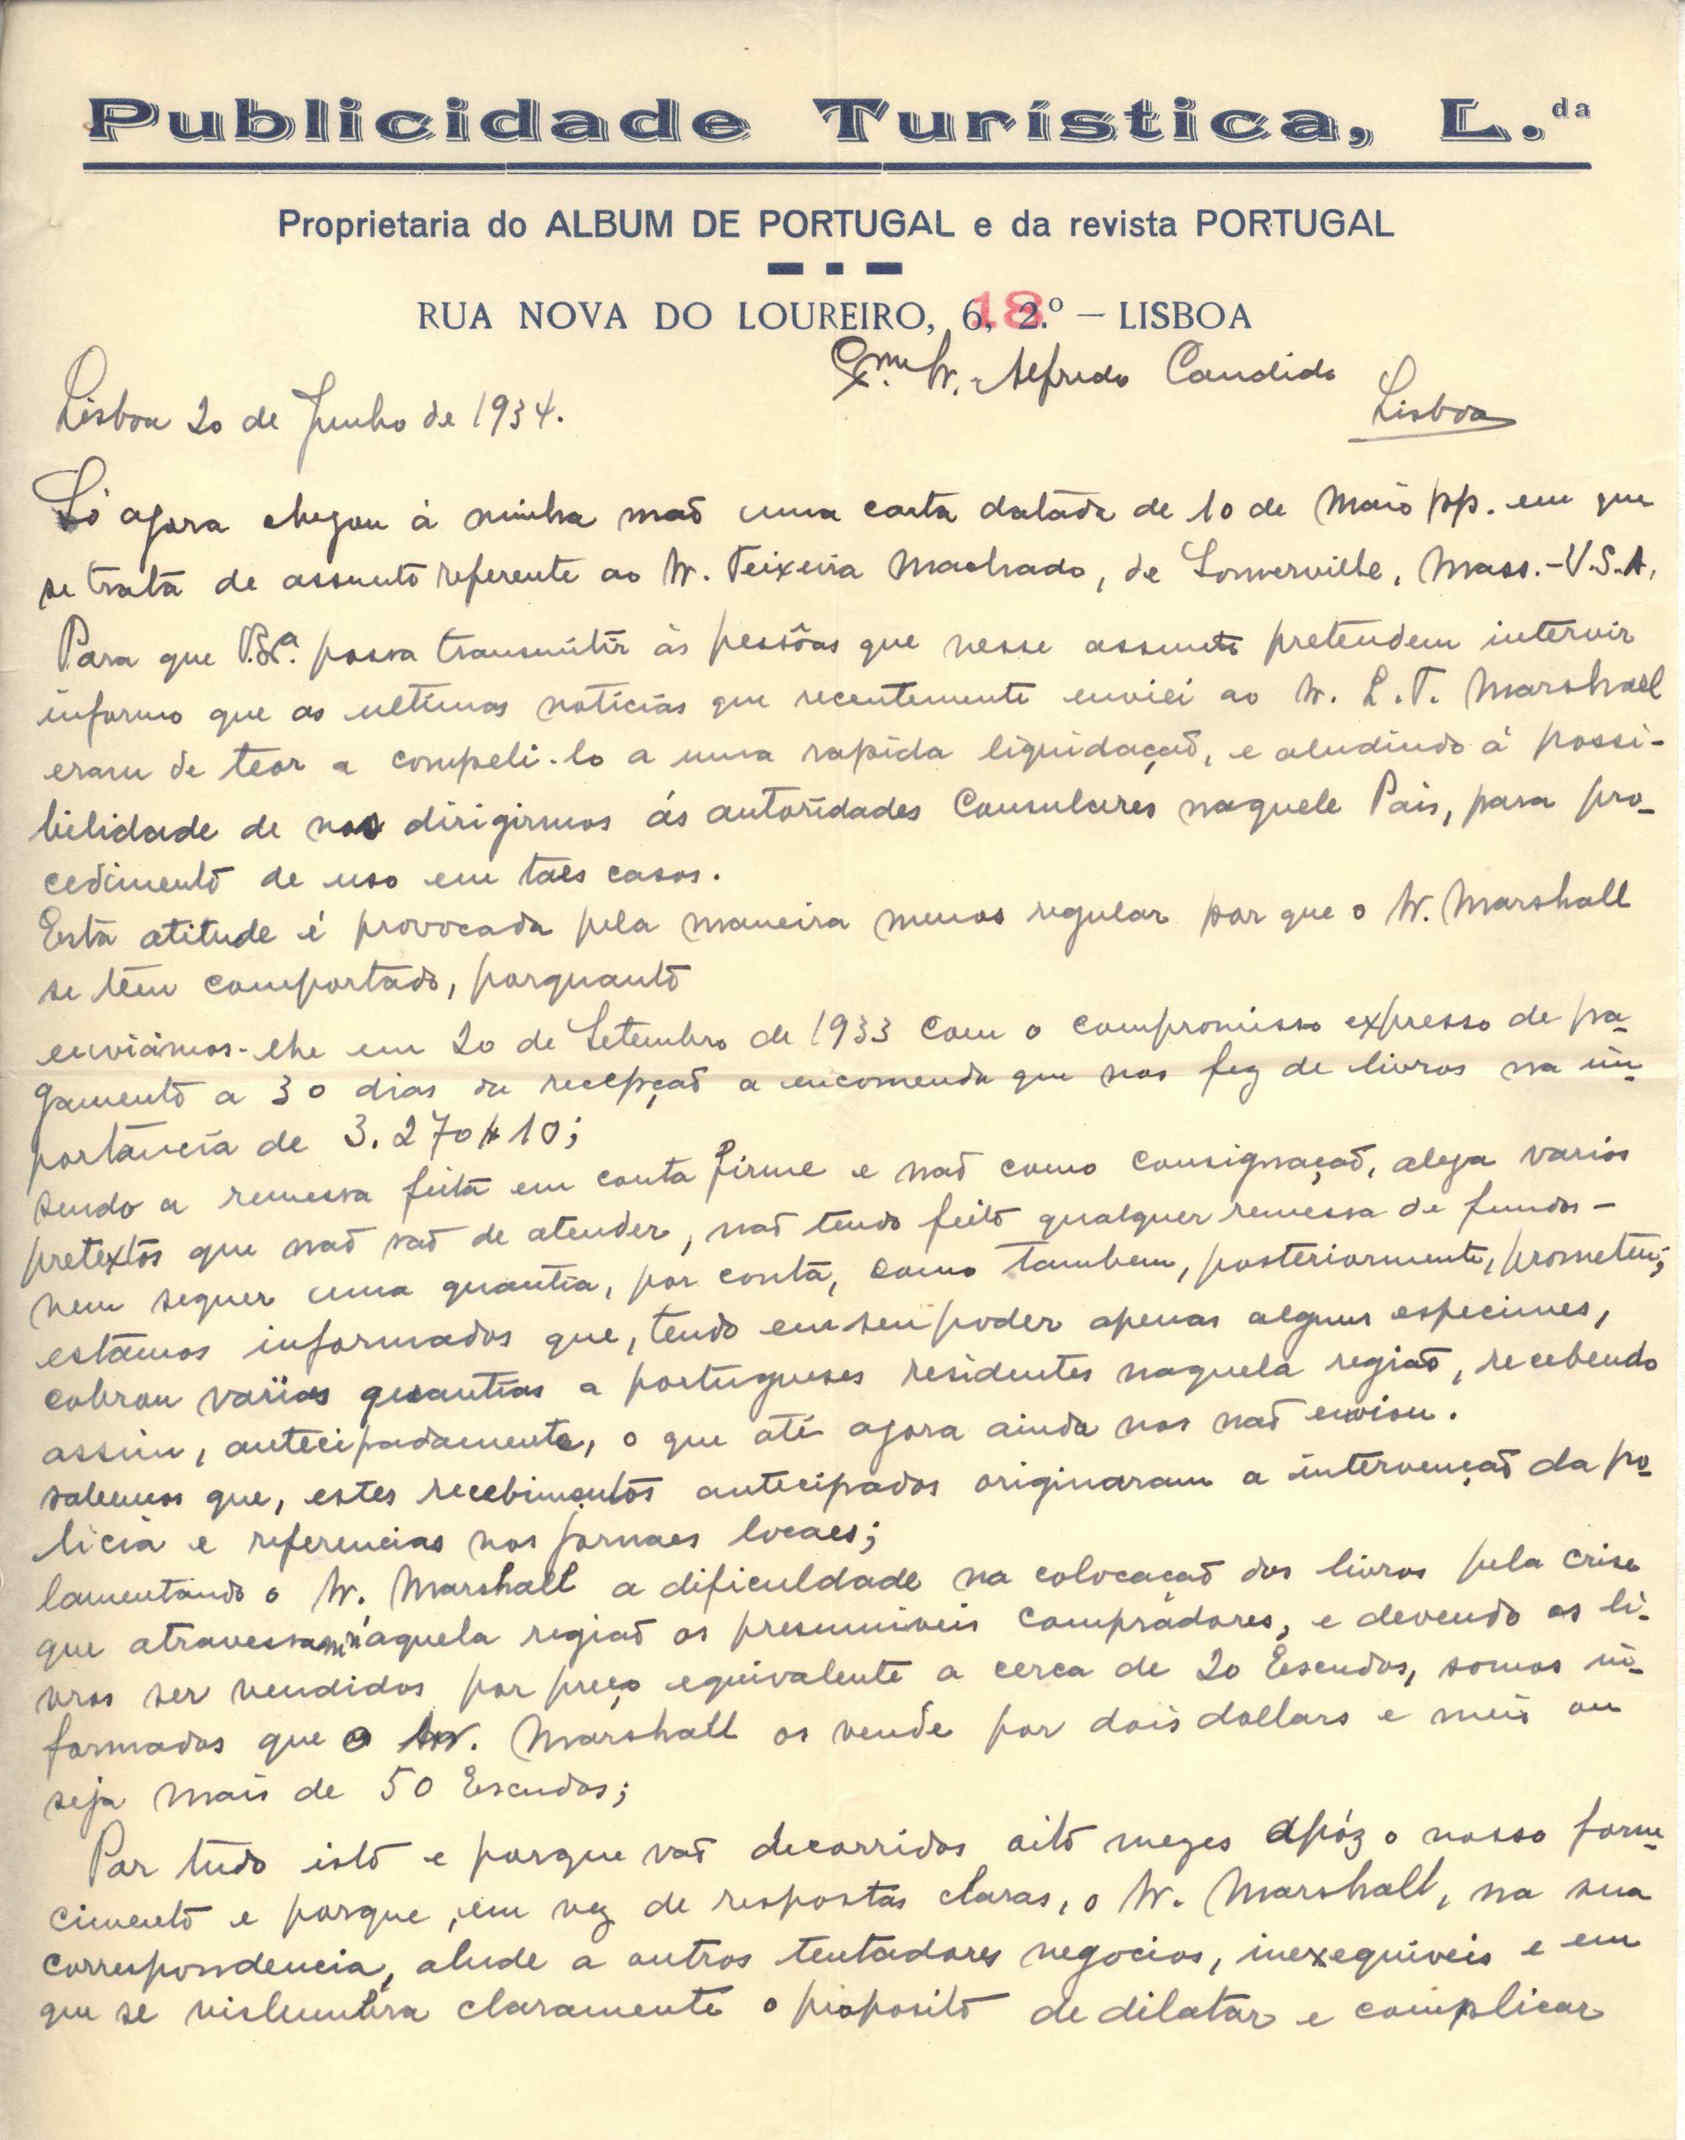 Publicidade Turística, L.da
Proprietaria do ALBUM DE PORTUGAL e da revista PORTUGAL
RUA NOVA DO LOUREIRO, 6, 2.º — LISBOA
18
Exmo Sr. Alfredo Candido
Lisboa
Lisboa 20 de Junho de 1934.
Só agora chegou á minha mão uma carta datada de 10 de Maio pp. em que
se trata de assunto referente ao Sr. Teixeira Machado, de Somerville, Mass.-U.S.A.
Para que V.Exª. possa transmitir ás pessôas que nesse assunto pretendem intervir
informo que as ultimas noticias que recentemente enviei ao Sr. L.T. Marshall
eram de teor a compeli-lo a uma rapida liquidação, e aludindo á possi-
bilidade de nos dirigirmos ás autoridades Consulares naquele Pais, para pro-
cedimento de uso em taes casos.
Esta atitude é provocada pela maneira menos regular por que o Sr. Marshall
se tem comportado, porquanto
enviámos-lhe em 20 de Setembro de 1933 com o compromisso expresso de pa-
gamento a 30 dias da recepção a encomenda que nos fez de livros na im-
portancia de 3.270$10;
sendo a remessa feita em conta firme e não como consignação, alega varios
pretextos que não são de atender, não tendo feito qualquer remessa de fundos -
nem sequer uma quantia, por conta, como tambem, posteriormente, prometeu;
estamos informados que, tendo em seu poder apenas alguns especimes,
cobrou varias quantias a portugueses residentes naquela região, recebendo
assim, antecipadamente, o que até agora ainda nos não enviou.
sabemos que, estes recebimentos antecipados originaram a intervenção da po-
licia e referencias nos jornaes locaes;
lamentando o Sr. Marshall a dificuldade na colocação dos livros pela crise
que atravessam n'aquela região os presumiveis compradores, e devendo os li-
vros ser vendidos por preço equivalente a cerca de 20 Escudos, somos in-
formados que o Sr. Marshall os vende por dois dollars e meio ou
seja mais de 50 Escudos;
Por tudo isto e porque vão decorridos oito mezes apóz o nosso forne-
cimento e porque, em vez de respostas claras, o Sr. Marshall, na sua
correspondencia, alude a outros tentadores negocios, inexequiveis e em
que se vislumbra claramente o proposito de dilatar e complicar